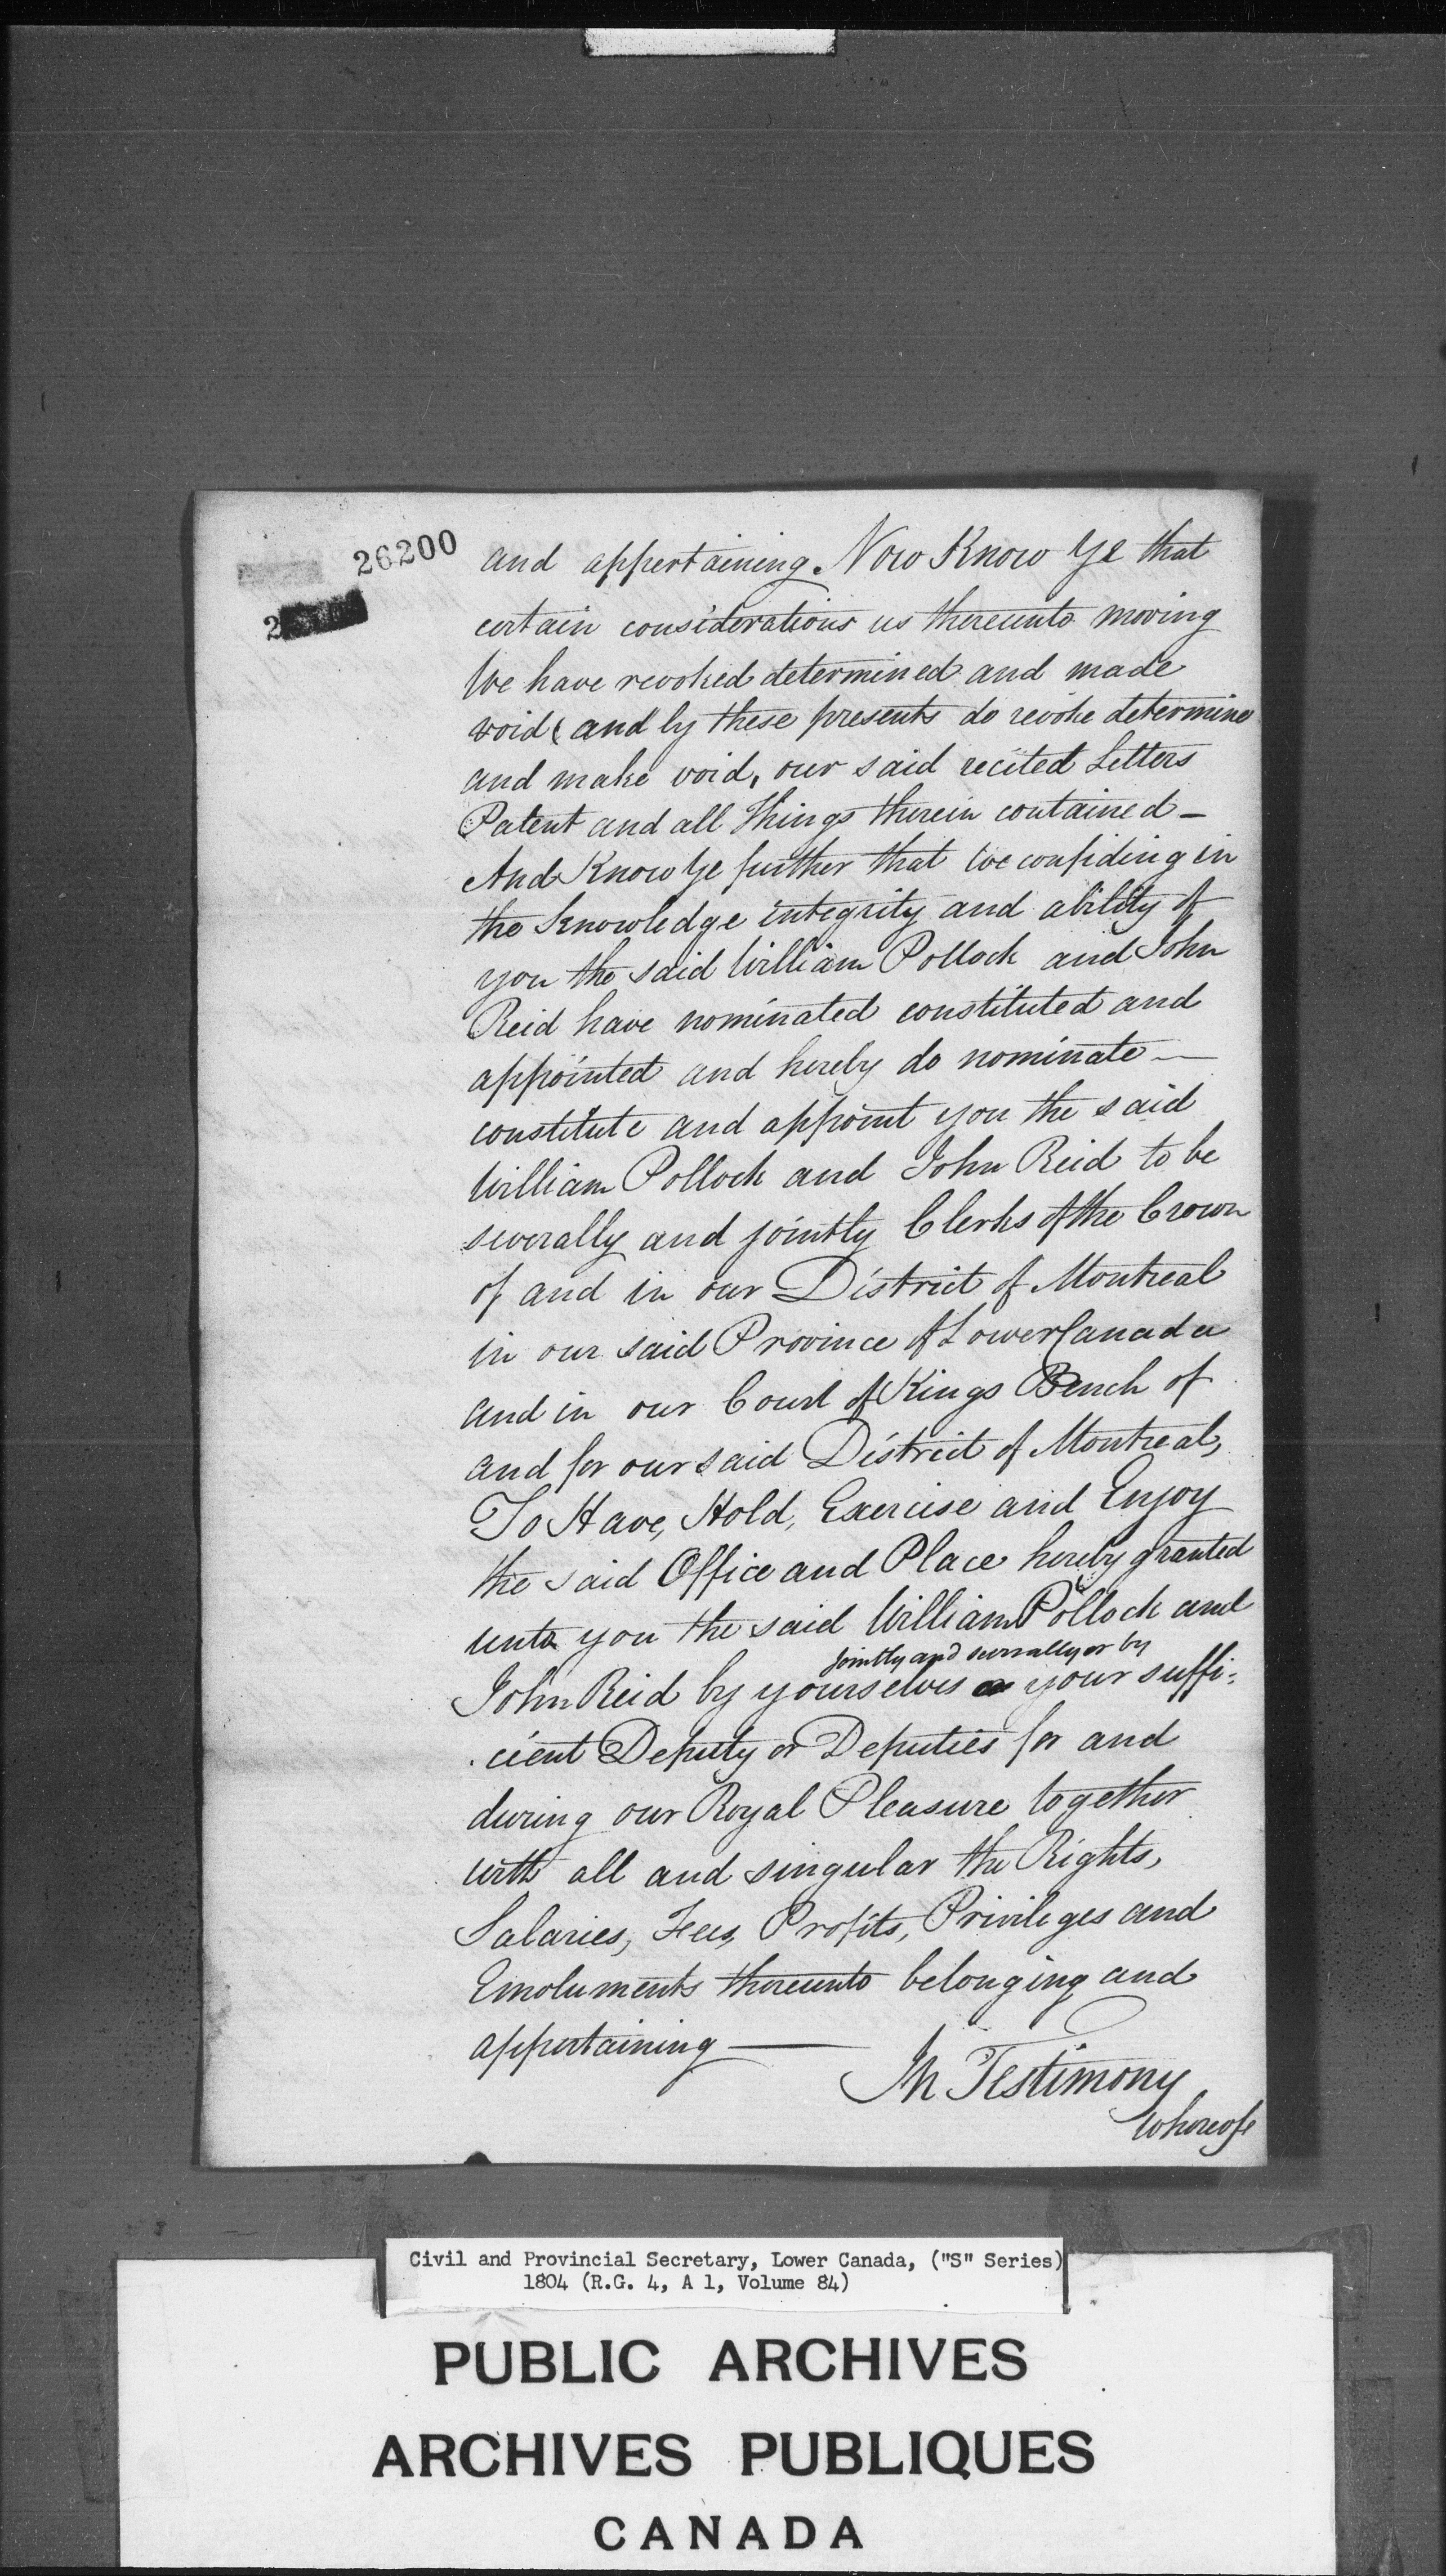 26200
and appertaining. Now Know Ye that
certain considerations us thereunto moving
We have revoked determined and made
void, and by these presents do revoke determine
and make void, our said recited Letters
Patent and all things therein contained —
And Know Ye further that We confiding in
the Knowledge integrity and ability of
you the said William Pollock and John
Reid have nominated constituted and
appointed and hereby do nominate —
constitute and appoint you the said
William Pollock and John Reid to be
severally and jointly Clerks of the Crown
of and in our District of Montreal
in our said Province of Lower Canada
and in our Court of Kings Bench of
and for our said District of Montreal,
To Have, Hold, Exercise and Enjoy
the said Office and Place hereby granted
unto you the said William Pollock and
jointly and severally or by
John Reid by yourselves your suffi:
cient Deputy or Deputies for and
during our Royal Pleasure together
with all and singular the Rights,
Salaries, Fees, Profits, Privileges and
Emoluments thereunto belonging and
appertaining —
In Testimony
Whereof
Civil and Provincial Secretary, Lower Canada, ("S" Series)
1804 (R.G. 4, A 1, Volume 84)
PUBLIC ARCHIVES
ARCHIVES PUBLIQUES
CANADA